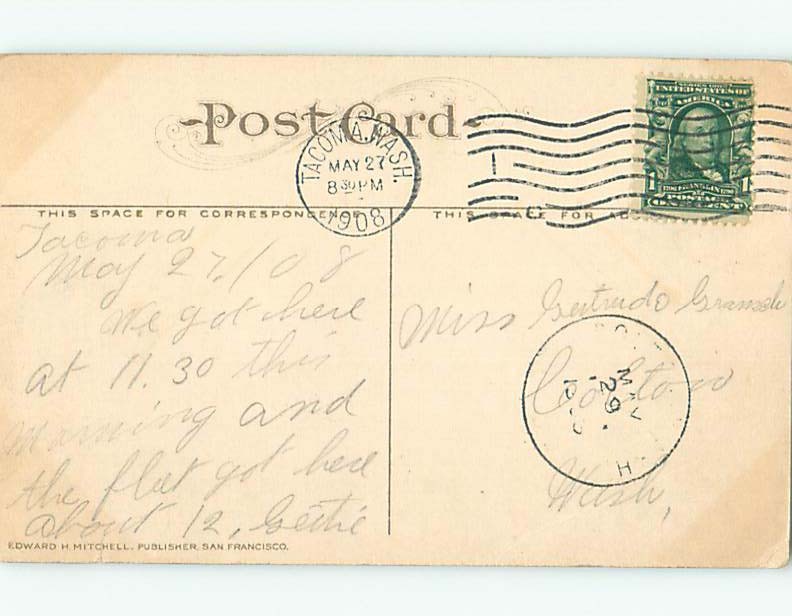 Post Card
TACOMA, WASH.
MAY 27
8 30 PM
1908
UNITED STATES OF
AMERICA
1 FRANKLIN 1
POSTAGE
THIS SPACE FOR CORRESPONDENCE
THIS SPACE FOR
Tacoma
May 27, / 08
We got here
at 11.30 this
Morning and
the fleet got here
about 12, Gertie
EDWARD H. MITCHELL, PUBLISHER, SAN FRANCISCO.
Miss Gertrude
Colton
Wash,
MAY
29